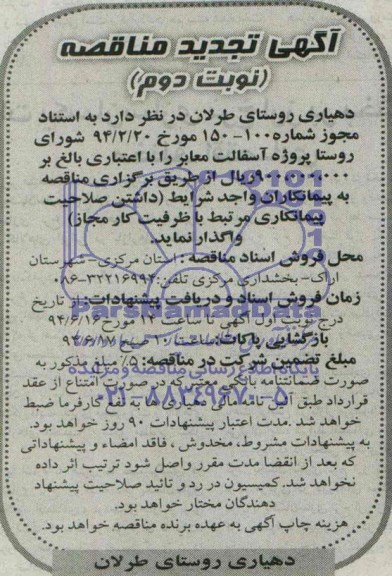 آگهی تجدید مناقصه
(نوبت دوم)
دهیاری روستای طرلان در نظر دارد به استناد
مجوز شماره ۱۰۰-۱۵۰ مورخ ۹۴/۲/۲۰ شورای
روستا پروژه آسفالت معابر را با اعتباری بالغ بر
ریال از طریق برگزاری مناقصه
به پیمانکاران واجد شرایط (داشتن صلاحیت
پیمانکاری مرتبط با ظرفیت کار مجاز)
واگذار نماید.
محل فروش اسناد مناقصه: استان مرکزی- شهرستان
اراک- بخشداری مرکزی تلفن: ۳۲۲۱۶۹۹۲-۰۸۶
زمان فروش اسناد و دریافت پیشنهادات: از تاریخ
درج نوبت اول آگهی تا ساعت ۱۲ مورخ ۹۴/۶/۱۶
بازگشایی پاکات: ساعت ۱۰ صبح ۹۴/۶/۱۷
مبلغ تضمین شرکت در مناقصه: ۵٪ مبلغ مذکور به
صورت ضمانتنامه بانکی معتبر که در صورت امتناع از عقد
قرارداد طبق آئین نامه مالی دهیاری ها به نفع کارفرما ضبط
خواهد شد. مدت اعتبار پیشنهادات ۹۰ روز خواهد بود.
به پیشنهادات مشروط، مخدوش، فاقد امضاء و پیشنهاداتی
که بعد از انقضا مدت مقرر واصل شود ترتیب اثر داده
نخواهد شد. کمیسیون در رد و تائید صلاحیت پیشنهاد
دهندگان مختار خواهد بود.
هزینه چاپ آگهی به عهده برنده مناقصه خواهد بود.
دهیاری روستای طرلان
ParsNamadData
پایگاه اطلاع رسانی مناقصه و مزایده
۰۲۱-۸۸۳۴۹۶۷۰-۵